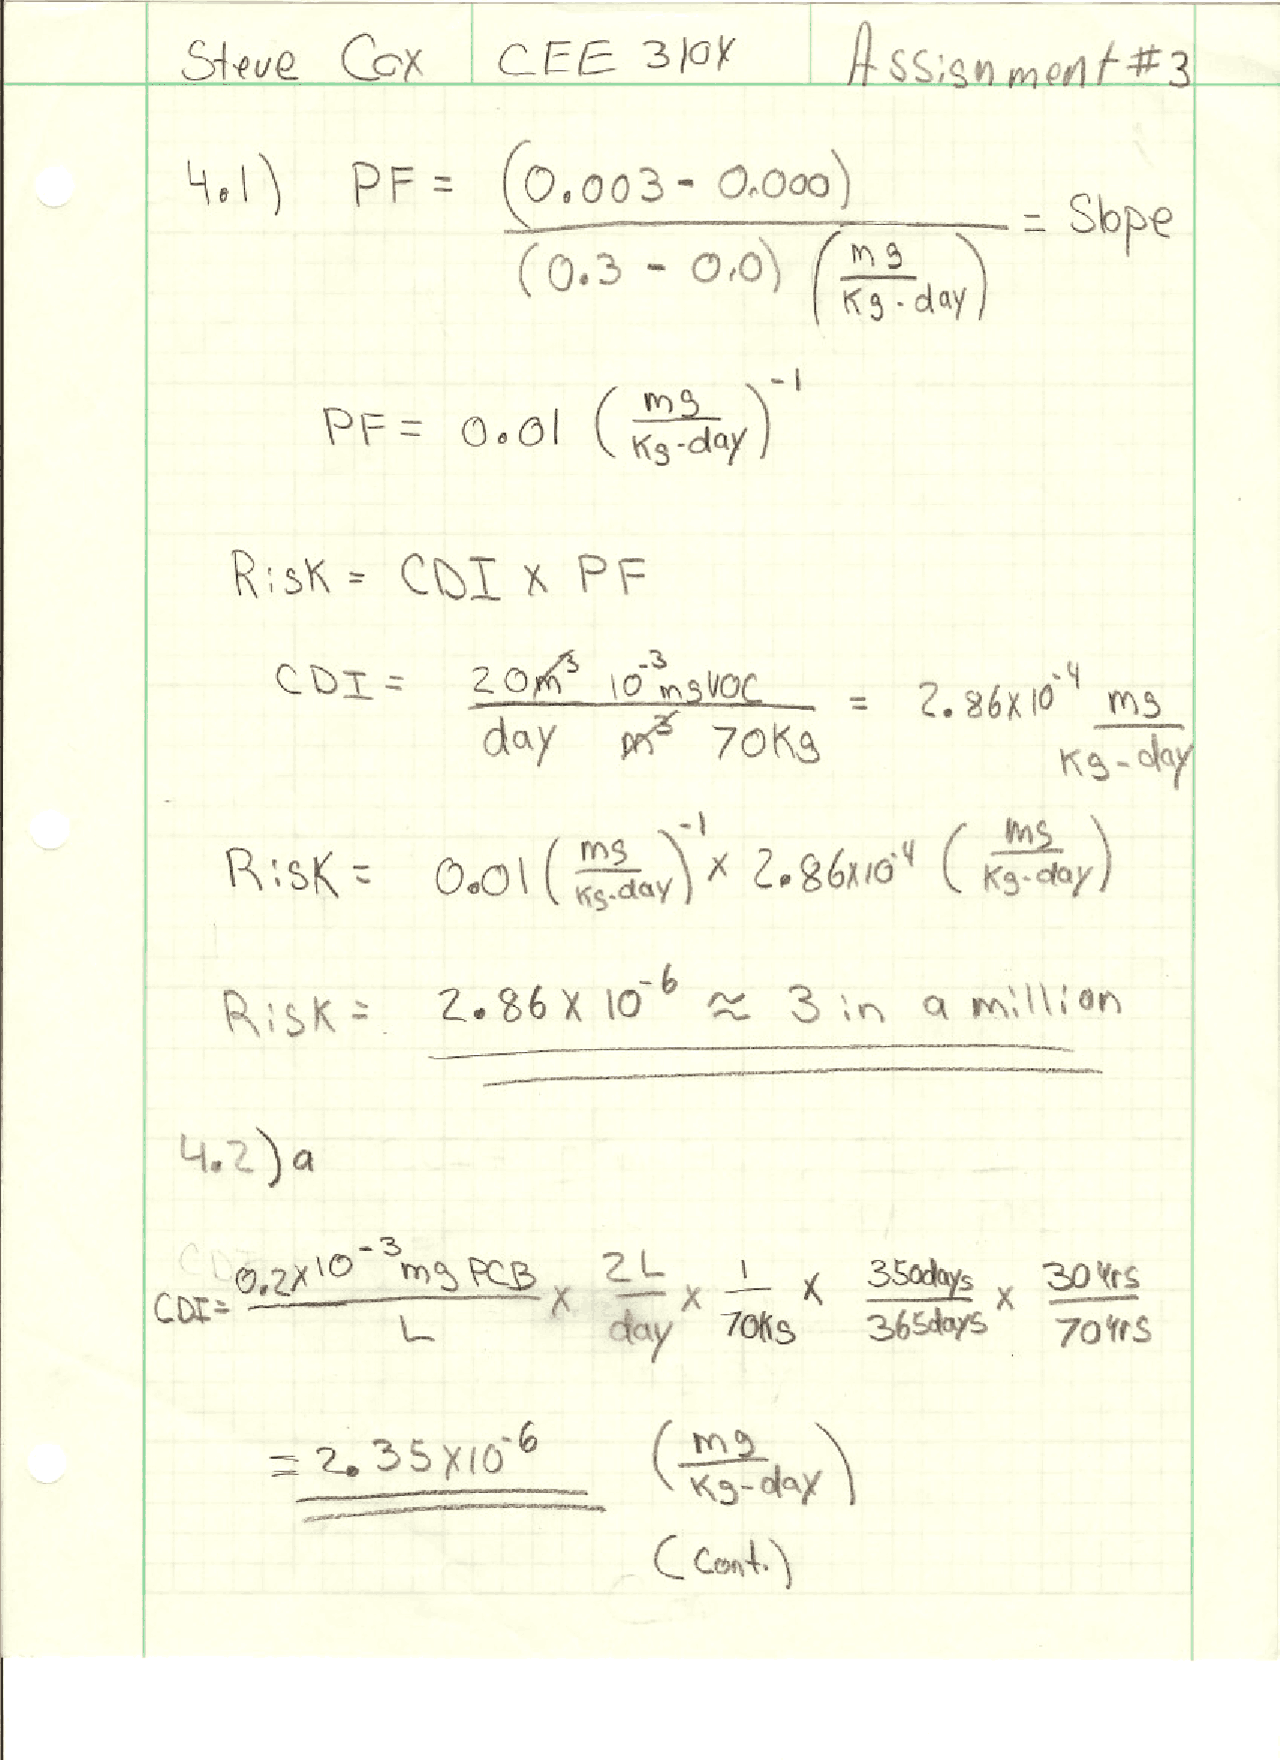 Steve Cox CEE 310X Assignment #3
4.1) PF = (0.003 - 0.000) / (0.3 - 0.0) (mg/Kg·day) = Slope
PF = 0.01 (mg/Kg·day)^-1
Risk = CDI x PF
CDI = 20m^3 10^-3 mg VOC / day m^3 70Kg = 2.86x10^-4 mg/Kg-day
Risk = 0.01 (mg/Kg·day)^-1 x 2.86x10^-4 (mg/Kg·day)
Risk = 2.86 x 10^-6 ≈ 3 in a million
4.2) a
CDI = 0.2x10^-3 mg PCB / L x 2L/day x 1/70Kg x 350days/365days x 30yrs/70yrs
= 2.35x10^-6 (mg/Kg-day)
(cont.)